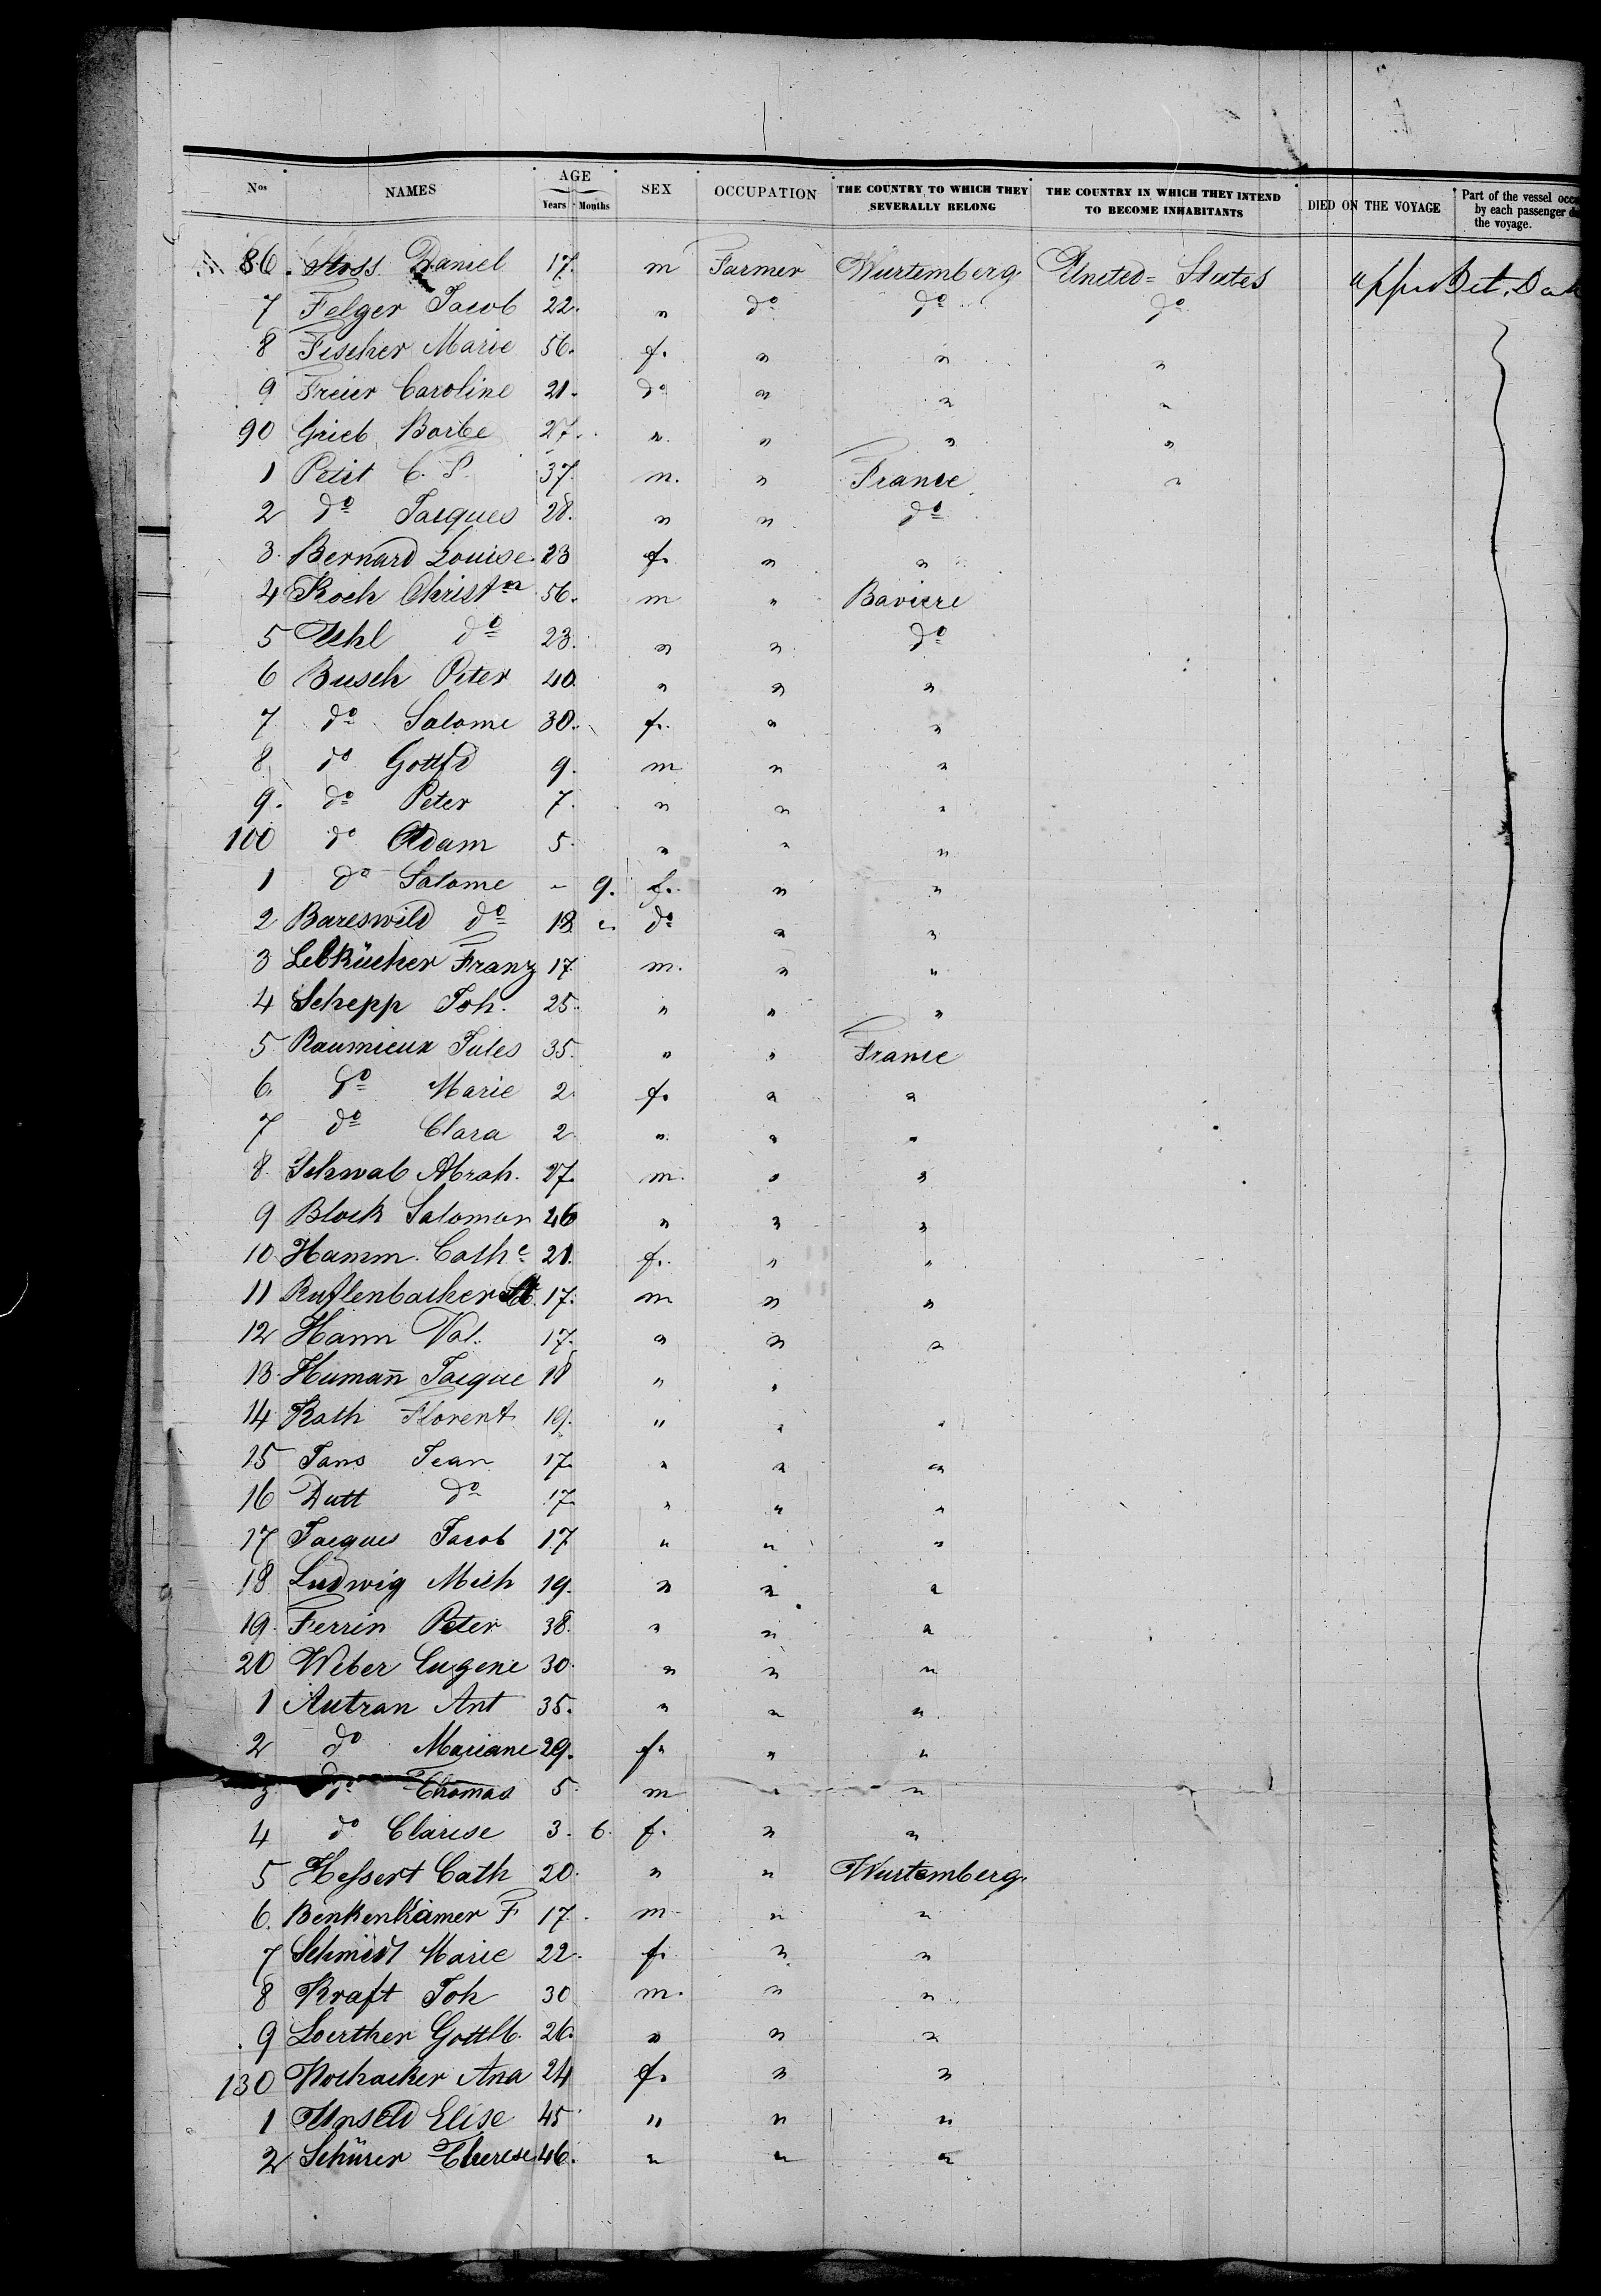 Nos NAMES AGE Years Months SEX OCCUPATION THE COUNTRY TO WHICH THEY SEVERALLY BELONG THE COUNTRY IN WHICH THEY INTEND TO BECOME INHABITANTS DIED ON THE VOYAGE Part of the vessel by each passenger the voyage.
86. Stoss Daniel 17. m Farmer Wurtemberg. United=States
7 Felger Jacob 22. " do do do
8 Fischer Marie 56. f. " " "
9 Freier Caroline 21. do " " "
90 Grieb Barbe 27. " " " "
1 Petit C. P. 37. m. " France "
2 do Jacques 28. " " do
3. Bernard Louise 23 f. " "
4 Koch Christn 56. m " Baviere
5 Uhl do 23. " " do
6 Busch Peter 40. " " "
7 do Salome 30. f. " "
8 do Gottfd 9. m " "
9. do Peter 7. " " "
100 do Adam 5. " " "
1 do Salome " 9. f. " "
2 Bareswild do 18. " do " "
3 Lebkücher Franz 17. m. " "
4 Schepp Joh. 25. " " "
5 Raumieux Jules 35. " " France
6. do Marie 2. f. " "
7 do Clara 2 " " "
8. Schwab Abrah. 27. m. " "
9 Block Salomon 26 " " "
10 Hamm Cathe 21. f. " "
11 17. m " "
12 Hann Val. 17. " " "
13. Humann Jacque 18 " "
14 Rath Florent 19. " " "
15 Jans Jean 17. " " "
16 Dutt do 17. " " "
17 Jacques Jacob 17 " " "
18 Ludwig Mich 19. " " "
19. Ferrin Peter 38. " " "
20 Weber Eugene 30. " " "
1 Autran Ant 35. " " "
2 do Mariane 29. f. " "
3 do Thomas 5. m " "
4 do Clarise 3. 6. f. " "
5 Hessert Cath 20. " " Wurtemberg.
6. Benkenkamer F 17. m " "
7 Schmidt Marie 22. f. " "
8 Kraft Joh 30 m. " "
9 Loerther Gottlb. 26. " " "
130 Nothacker Ana 24 f. " "
1 Unseld Elise 45 " " "
2 Schürer Therese 46. " " "